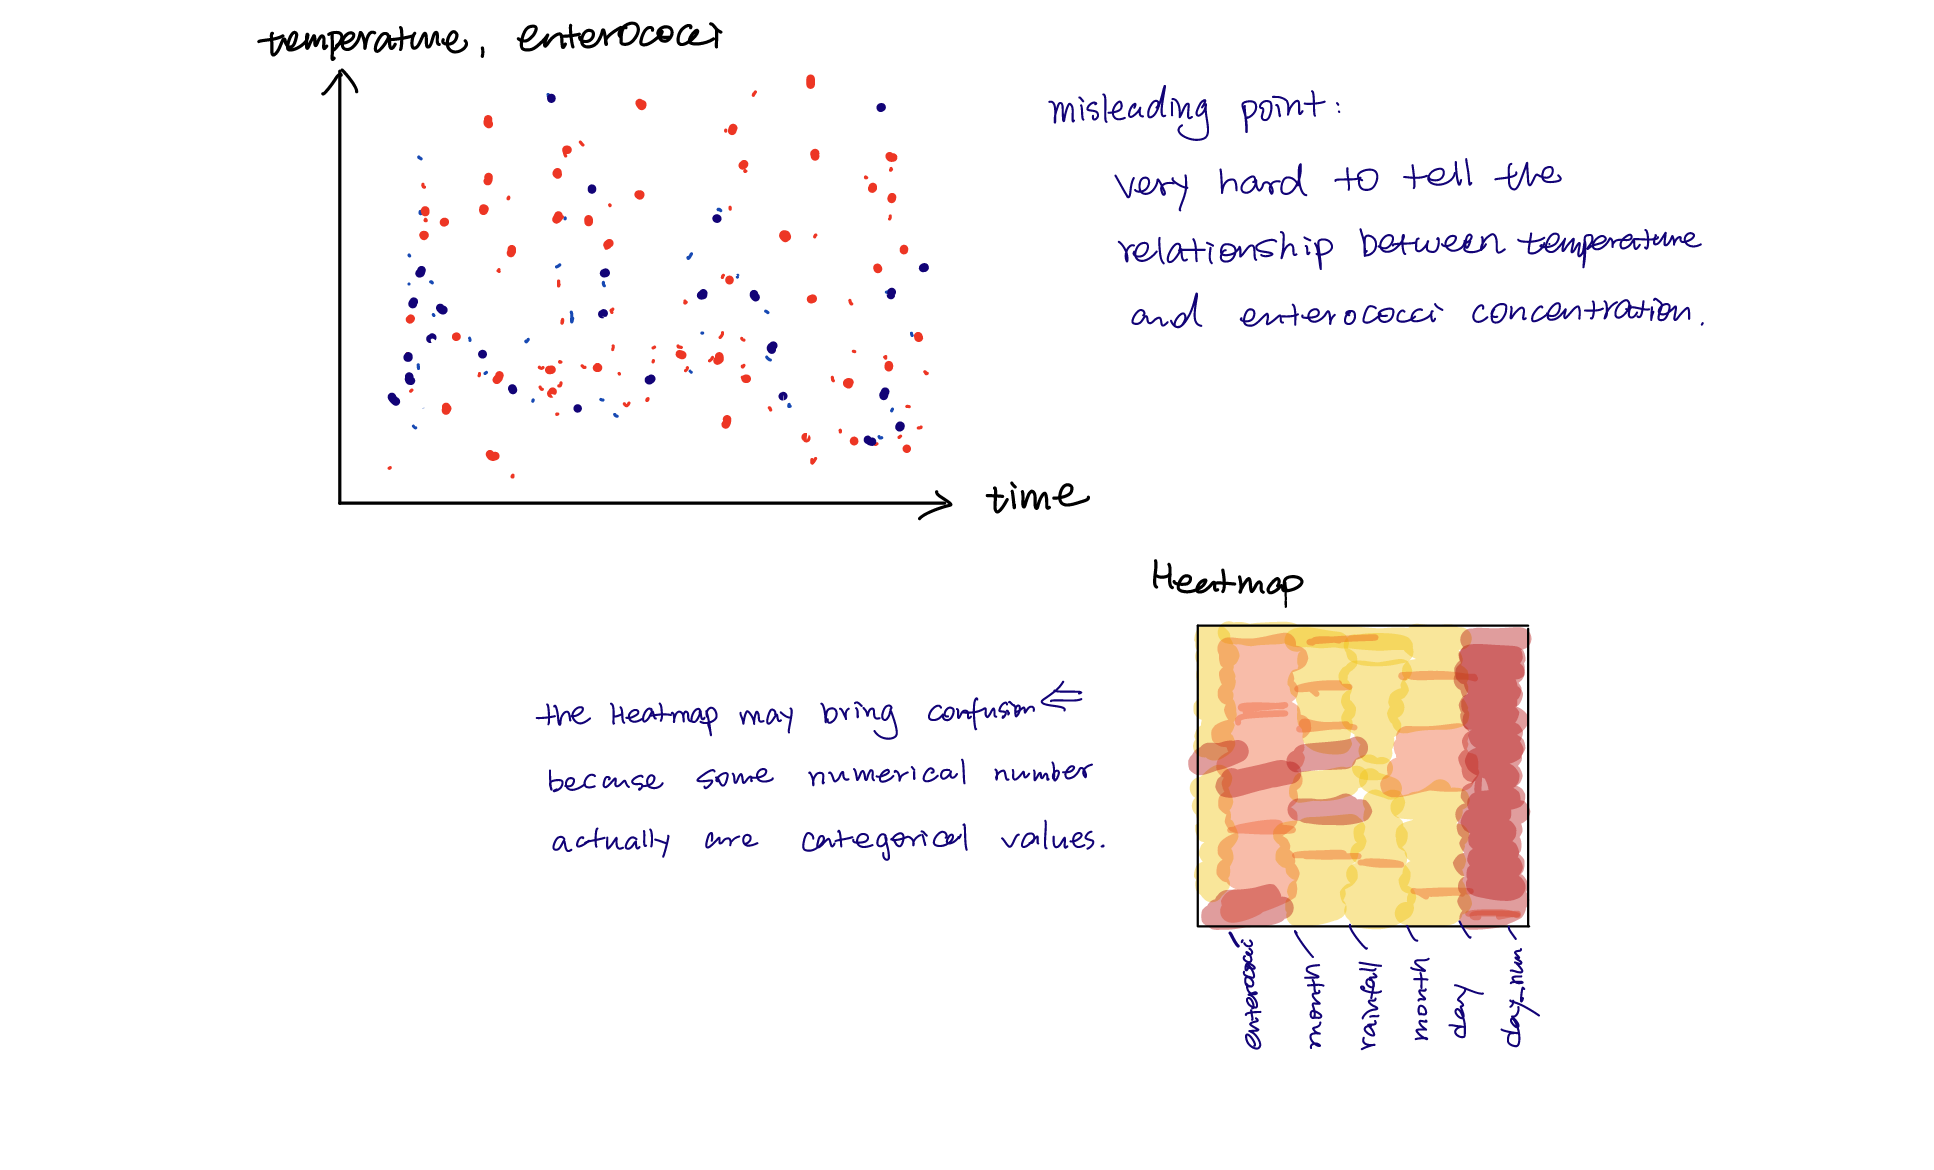 temperature, enterococci
misleading point:
very hard to tell the
relationship between temperature
and enterococci concentration.
time
Heatmap
the Heatmap may bring confusion ⇐
because some numerical number
actually are categorical values.
enterococci
month
rainfall
month
day
day_num